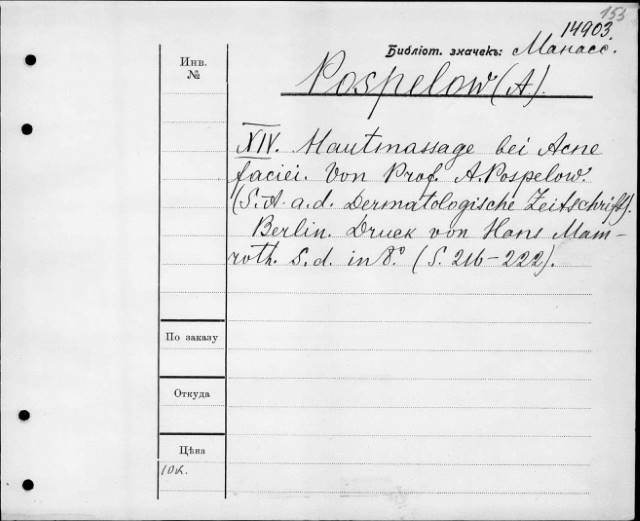 153
14903.
Библіот. значекъ: Манасс.
Инв.
№
Pospelow (A.).
XIV. Hautmassage bei Acne
faciei. Von Prof. A. Pospelow.
(S.-A. a. d. Dermatologische Zeitschrift).
Berlin. Druck von Hans Mam-
roth. S. d. in 8.° (S. 216-222).
По заказу
Откуда
Цѣна
10к.